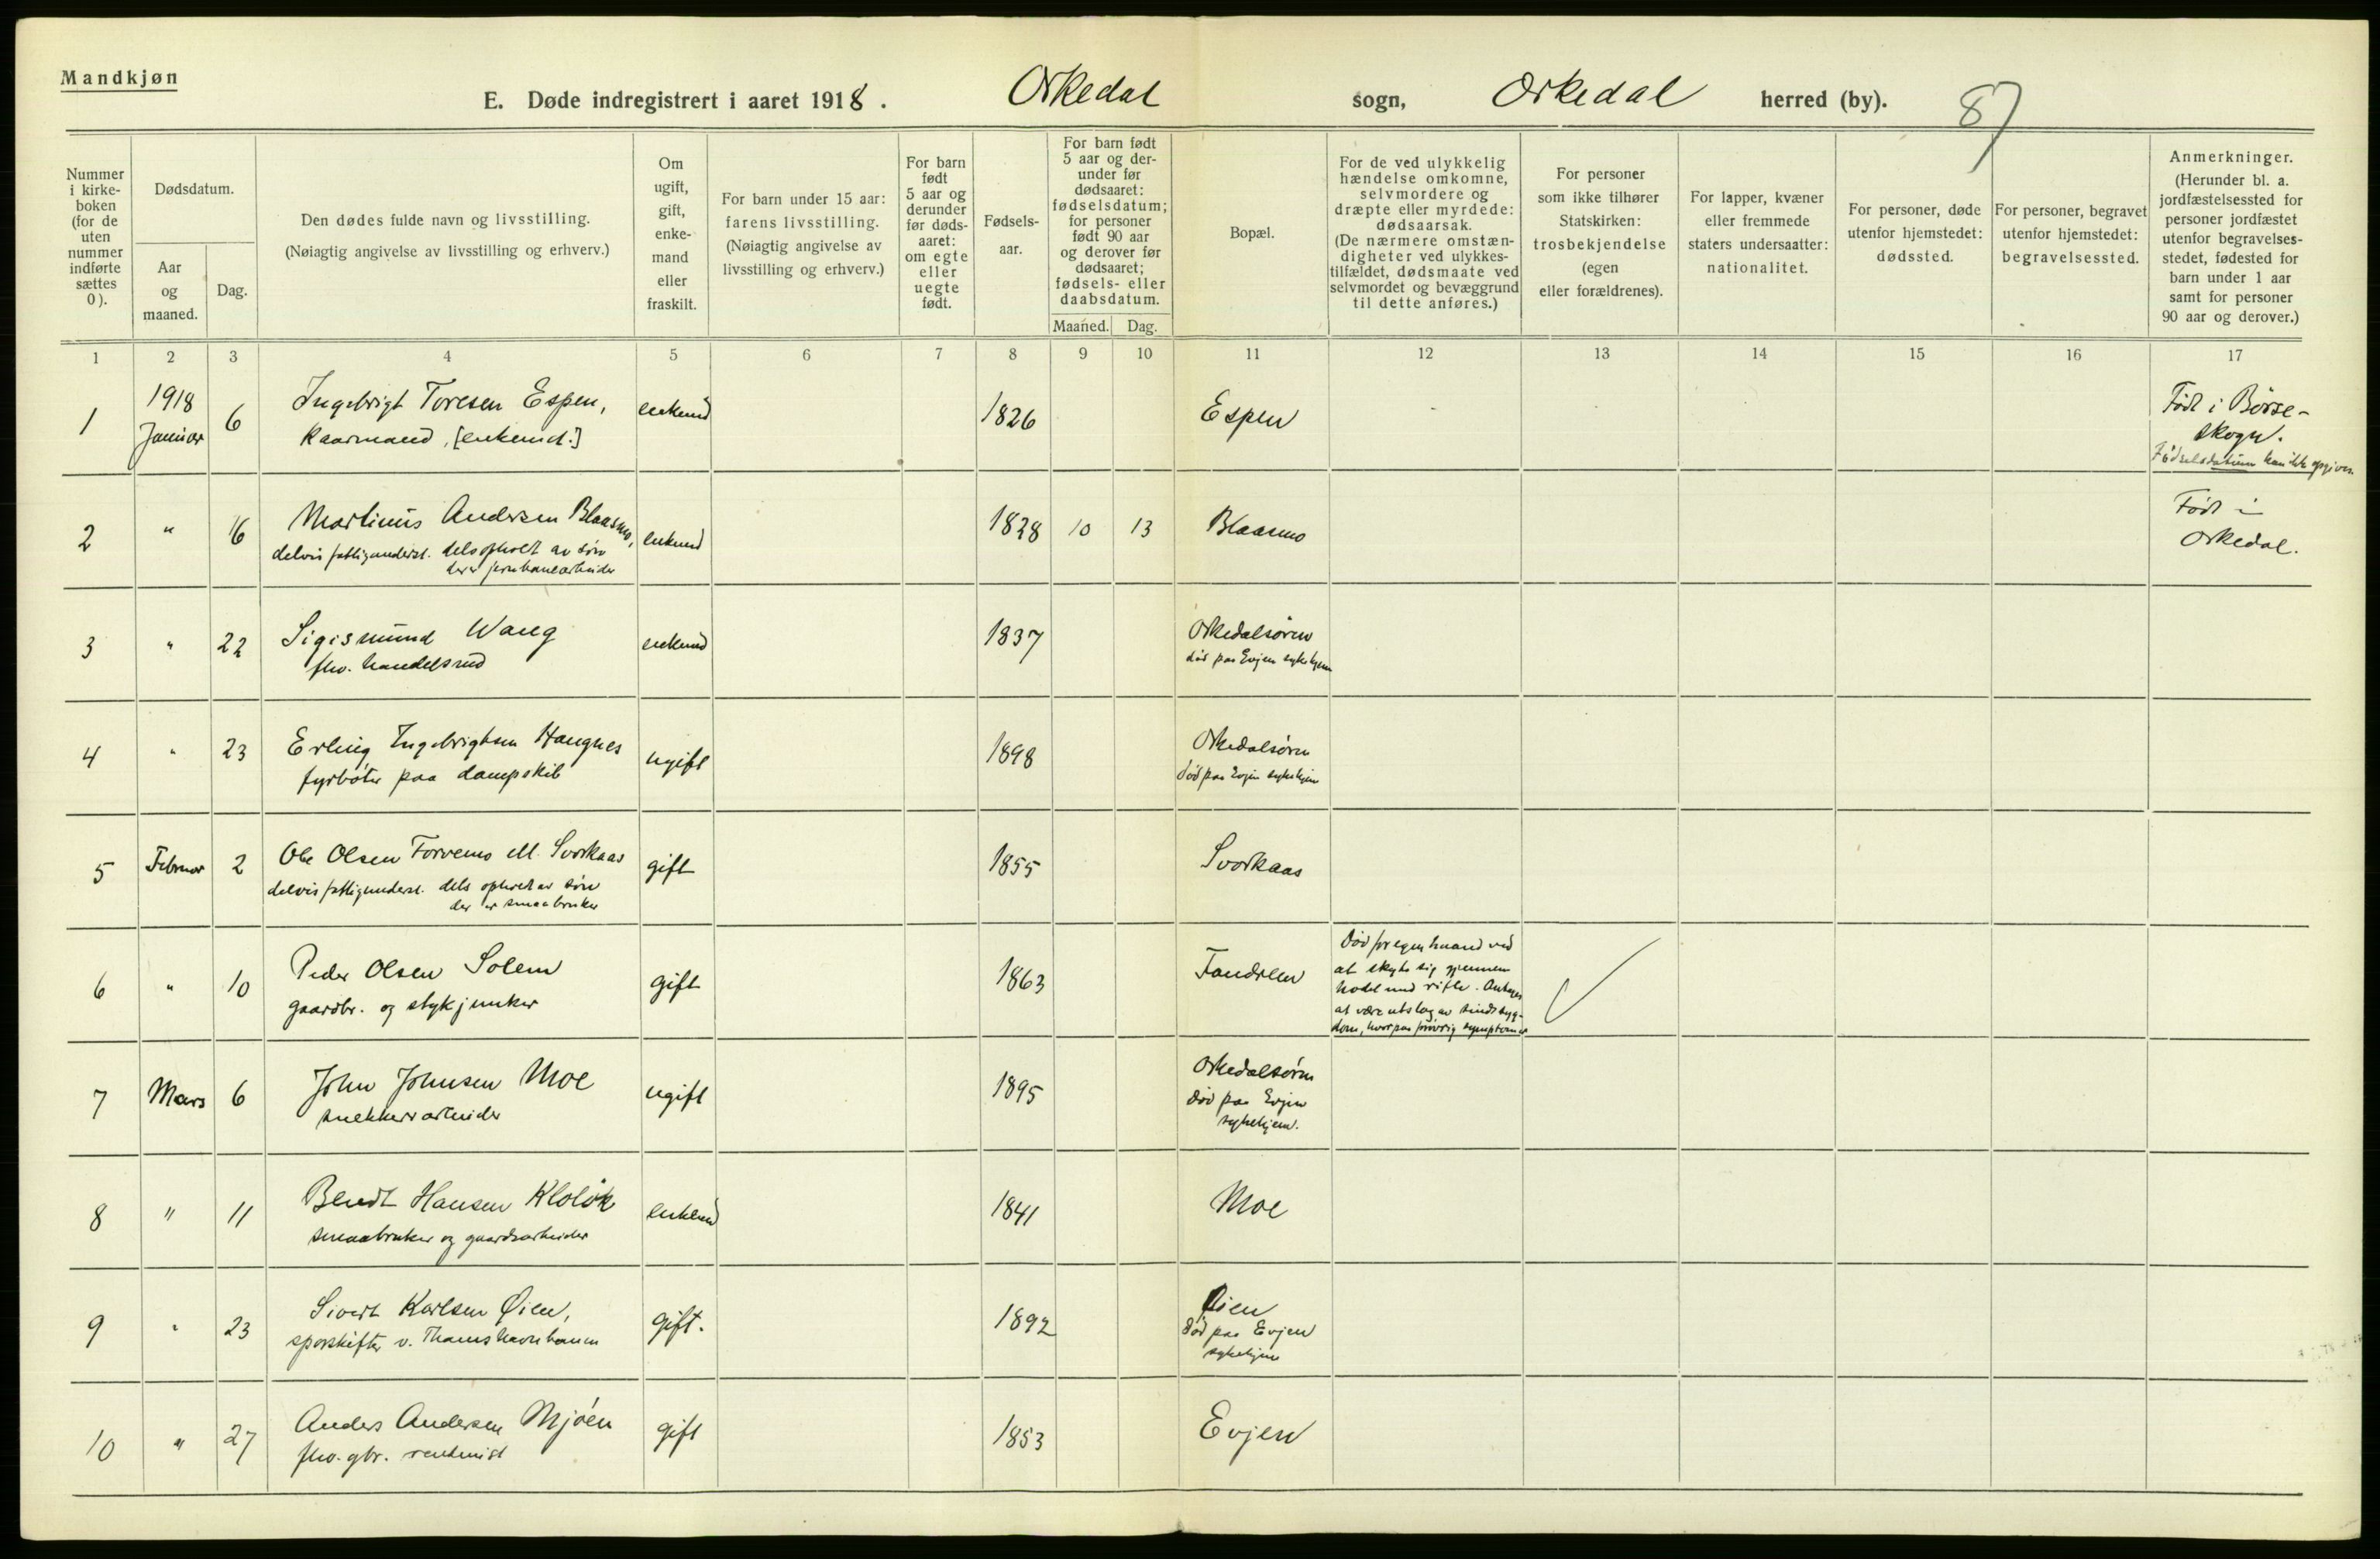 Mandkjøn
E. Døde indregistrert i aaret 1918. Orkedal sogn, Orkedal herred (by). 87
Nummer i kirke- boken (for de uten nummer indførte sættes 0).
Dødsdatum.
Aar og maaned.
Dag.
Den dødes fulde navn og livsstilling.
(Nøiagtig angivelse av livsstilling og erhverv.)
Om ugift, gift, enke- mand eller fraskilt.
For barn under 15 aar: farens livsstilling.
(Nøiagtig angivelse av livsstilling og erhverv.)
For barn født 5 aar og derunder før døds- aaret: om egte eller uegte født.
Fødsels- aar.
For barn født 5 aar og der- under før dødsaaret: fødselsdatum; for personer født 90 aar og derover før dødsaaret; fødsels- eller daabsdatum.
Maaned. Dag.
Bopæl.
For de ved ulykkelig hændelse omkomne, selvmordere og dræpte eller myrdede: dødsaarsak.
(De nærmere omstæn- digheter ved ulykkes- tilfældet, dødsmaate ved selvmordet og bevæggrund til dette anføres.)
For personer som ikke tilhører Statskirken: trosbekjendelse (egen eller forældrenes).
For lapper, kvæner eller fremmede staters undersaatter: nationalitet.
For personer, døde utenfor hjemstedet: dødssted.
For personer, begravet utenfor hjemstedet: begravelsessted.
Anmerkninger.
(Herunder bl. a. jordfæstelsessted for personer jordfæstet utenfor begravelses- stedet, fødested for barn under 1 aar samt for personer 90 aar og derover.)
1 2 3 4 5 6 7 8 9 10 11 12 13 14 15 16 17
1 1918 Januar 6 Ingebrigt Toresen Espen, enkemd 1826 Espen Født i Børse-
kaarmand, [enkemd.] skogn.
Fødselsdatum kan ikke opgives
2 " 16 Martinus Andersen Blaasmo, enkemd 1828 10 13 Blaasmo Født i
delvis fattigunderst. dels opholdt av søn Orkedal.
der er jernbanearbeider
3 " 22 Sigismund Wang enkemd 1837 Orkedalsøren
fhv. handelsmd død paa Evjen sykehjem
4 " 23 Erling Ingebrigtsen Haugnes ugift 1898 Orkedalsøren
fyrbøter paa dampskib død paa Evjen sykehjem
5 Februar 2 Ole Olsen Forvemo ell. Svorkaas gift 1855 Svorkaas
delvis fattigunderst. dels opholdt av søn
der er smaabruker
6 " 10 Peder Olsen Solem gift 1863 Fandrem Død for egen haand ved
gaardbr. og stykjunker at skyte sig gjennem
hodet med rifle. Antages
at være utslag av sindssyg-
dom, hvorpaa forøvrig symptomer
7 Mars 6 John Johnsen Moe ugift 1895 Orkedalsøren
snekkerarbeider død paa Evjen
sykehjem.
8 " 11 Bendt Hansen Kloløk enkemd 1841 Moe
smaabruker og gaardsarbeider
9 " 23 Sivert Karlsen Øien, gift. 1892 Øien
sporskifter v. Thamshavnbanen død paa Evjen
sykehjem
10 " 27 Anders Andersen Mjøen gift 1853 Evjen
fhv. gbr. rentenist